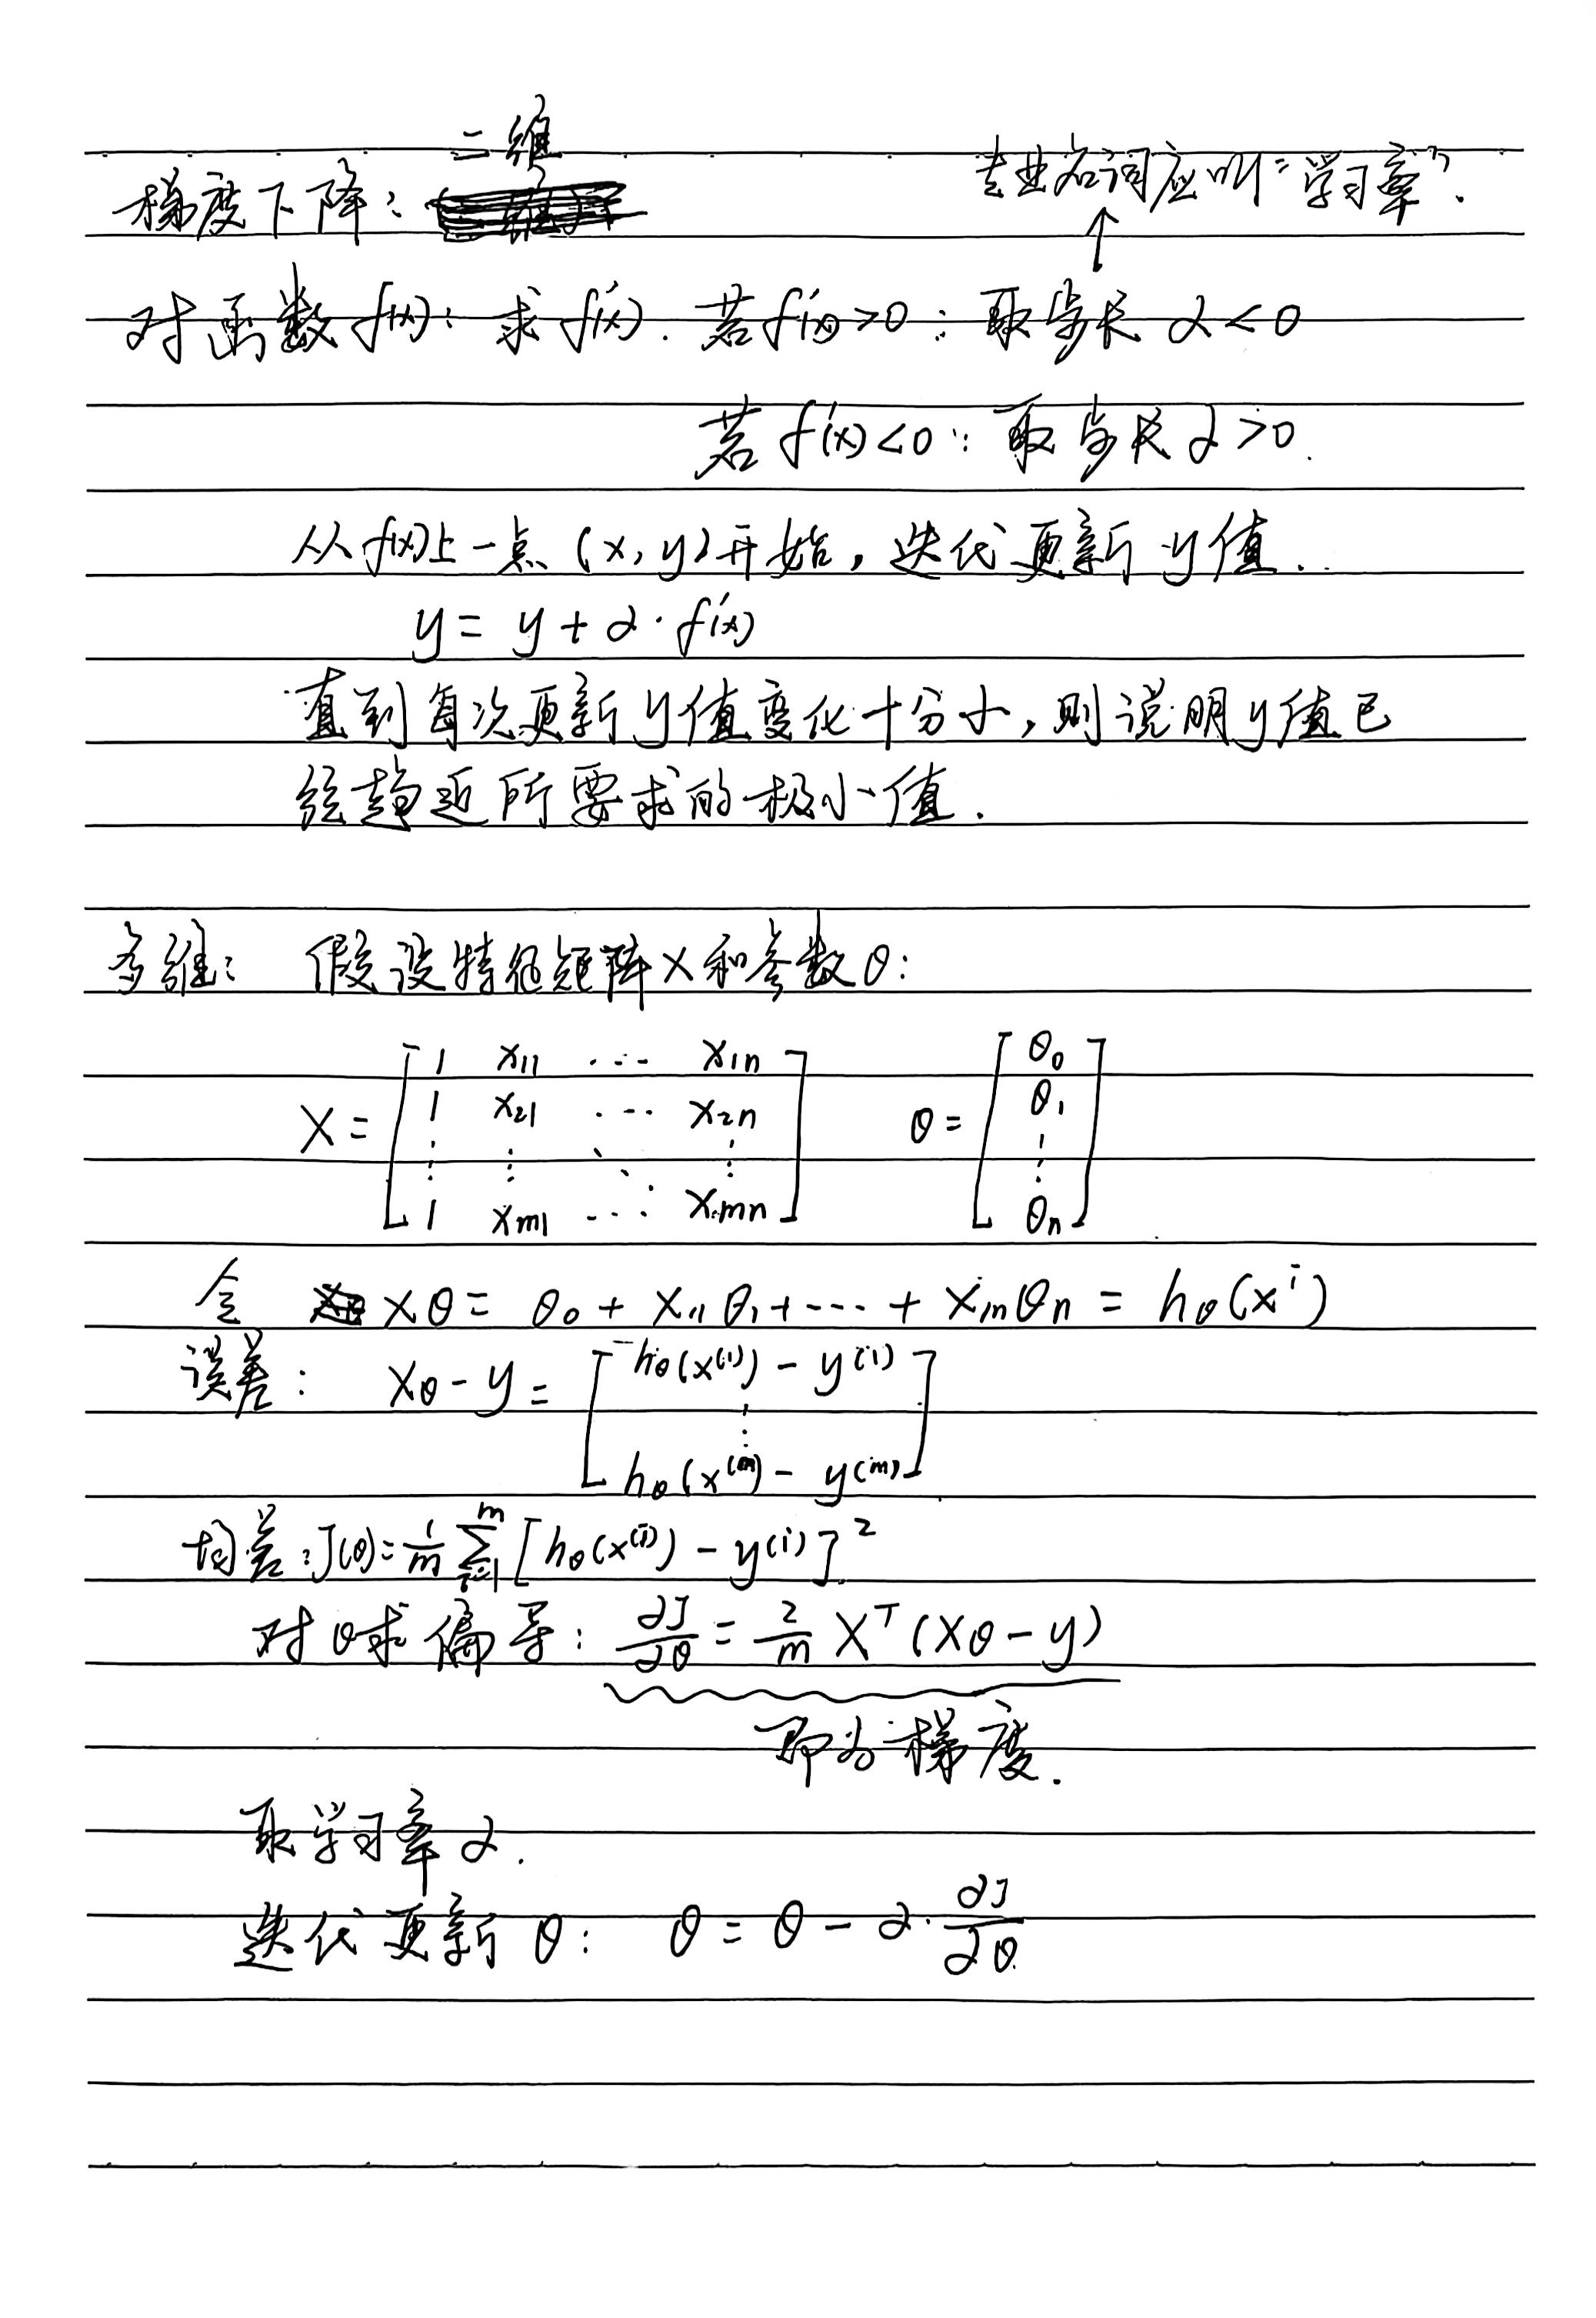 二维
专业名词应叫“学习率”.
梯度下降:
↑
对函数f(x): 求f'(x). 若f'(x)>0: 取步长 α<0
若 f'(x)<0: 取步长 α>0.
从f(x)上一点(x,y)开始,迭代更新y值.
y= y+α·f'(x)
直到每次更新y值变化十分小,则说明y值已
经趋近所要求的极小值.
多维: 假设特征矩阵X和参数θ:
X= [ 1 x11 ... x1n ] θ= [ θ0 ]
[ 1 x21 ... x2n ] [ θ1 ]
[ ⋮ ⋮ ⋱ ⋮ ] [ ⋮ ]
[ 1 xm1 ... xmn ] [ θn ]
令 Xθ= θ0+ x11θ1+...+ x1nθn = hθ(x^i)
误差: Xθ-y= [ hθ(x^(1)) - y^(1) ]
⋮
[ hθ(x^(m)) - y^(m) ]
均差:J(θ)=1/m ∑_{i=1}^{m} [hθ(x^(i)) - y^(i)]²
对θ求偏导: ∂J/∂θ = 2/m X^T(Xθ-y)
即为梯度.
取学习率α.
迭代更新θ: θ=θ-α·∂J/∂θ